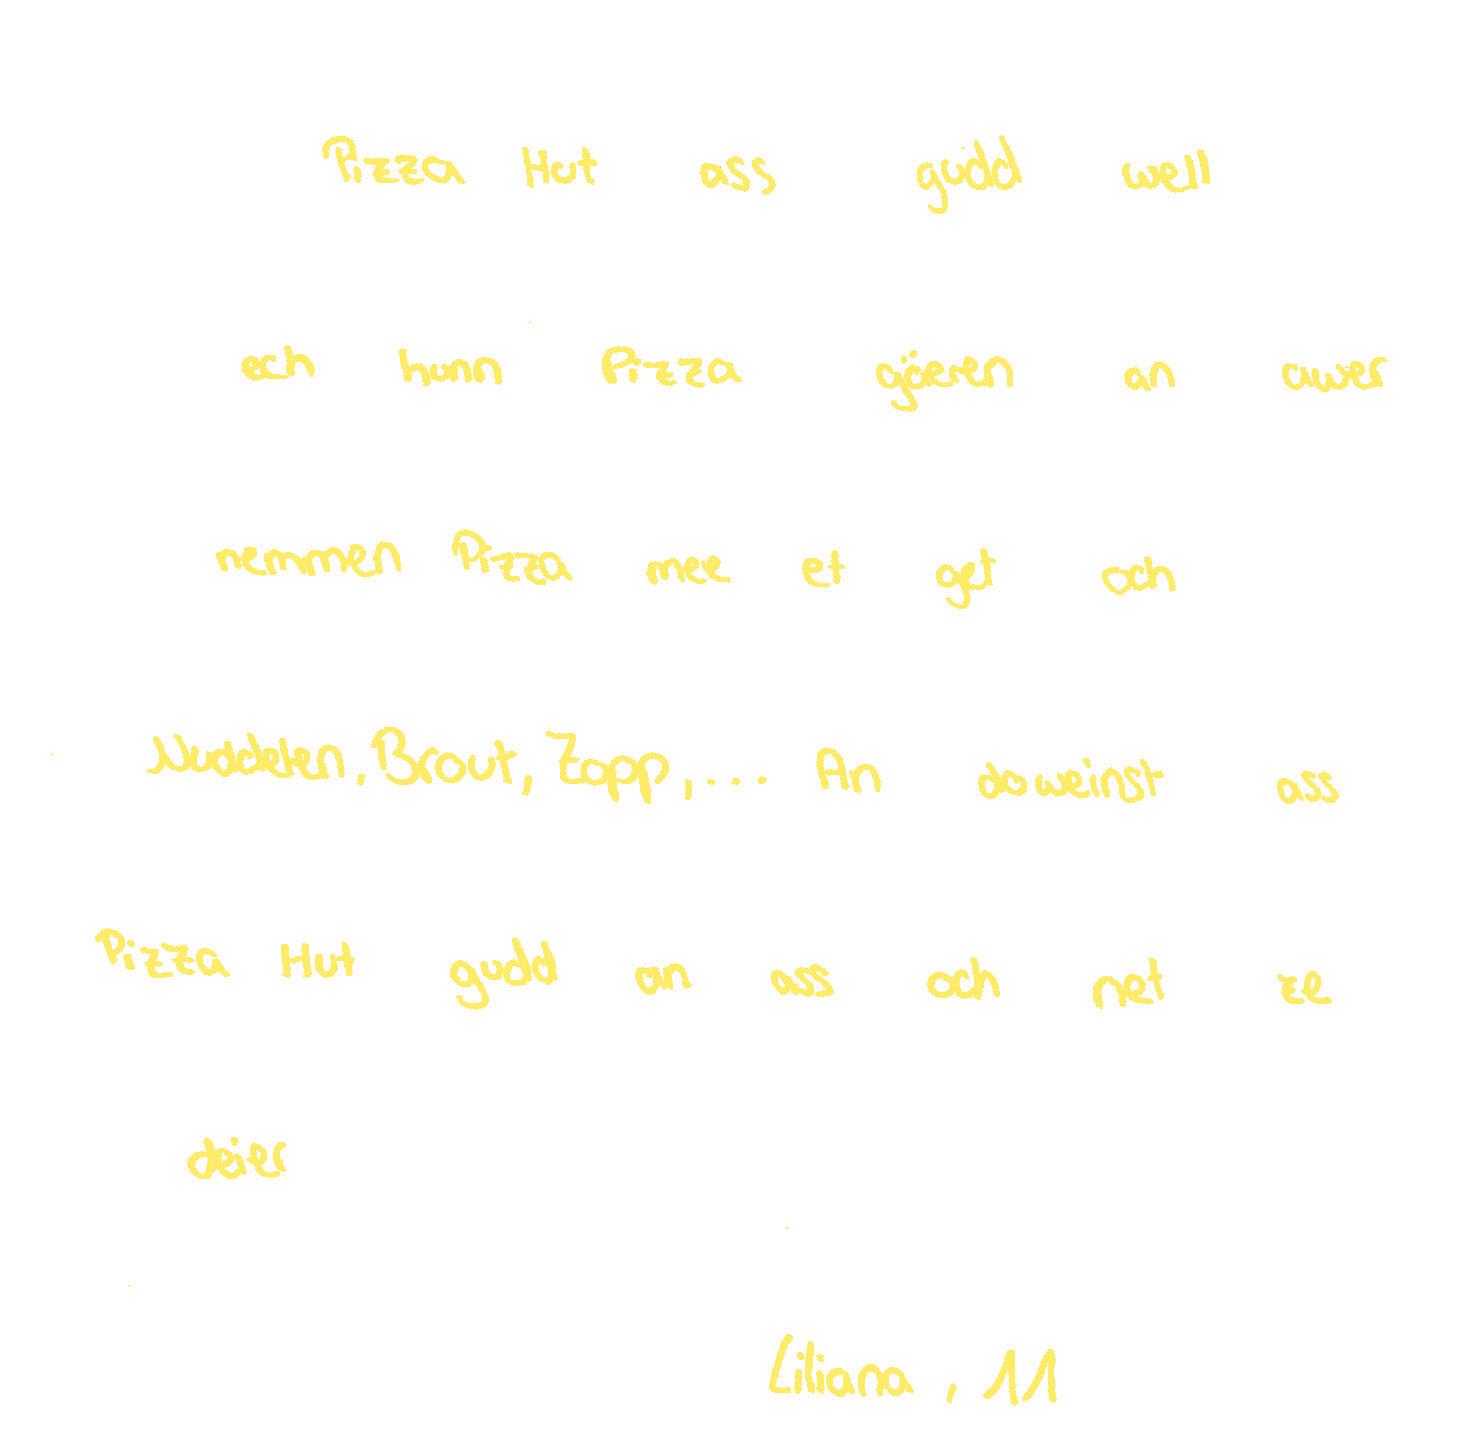 Pizza Hut ass gudd well
ech hunn Pizza gäeren an awer
nemmen Pizza mee et get och
Nuddelen, Brout, Zopp, ... An doweinst ass
Pizza Hut gudd an ass och net ze
deier
Liliana, 11